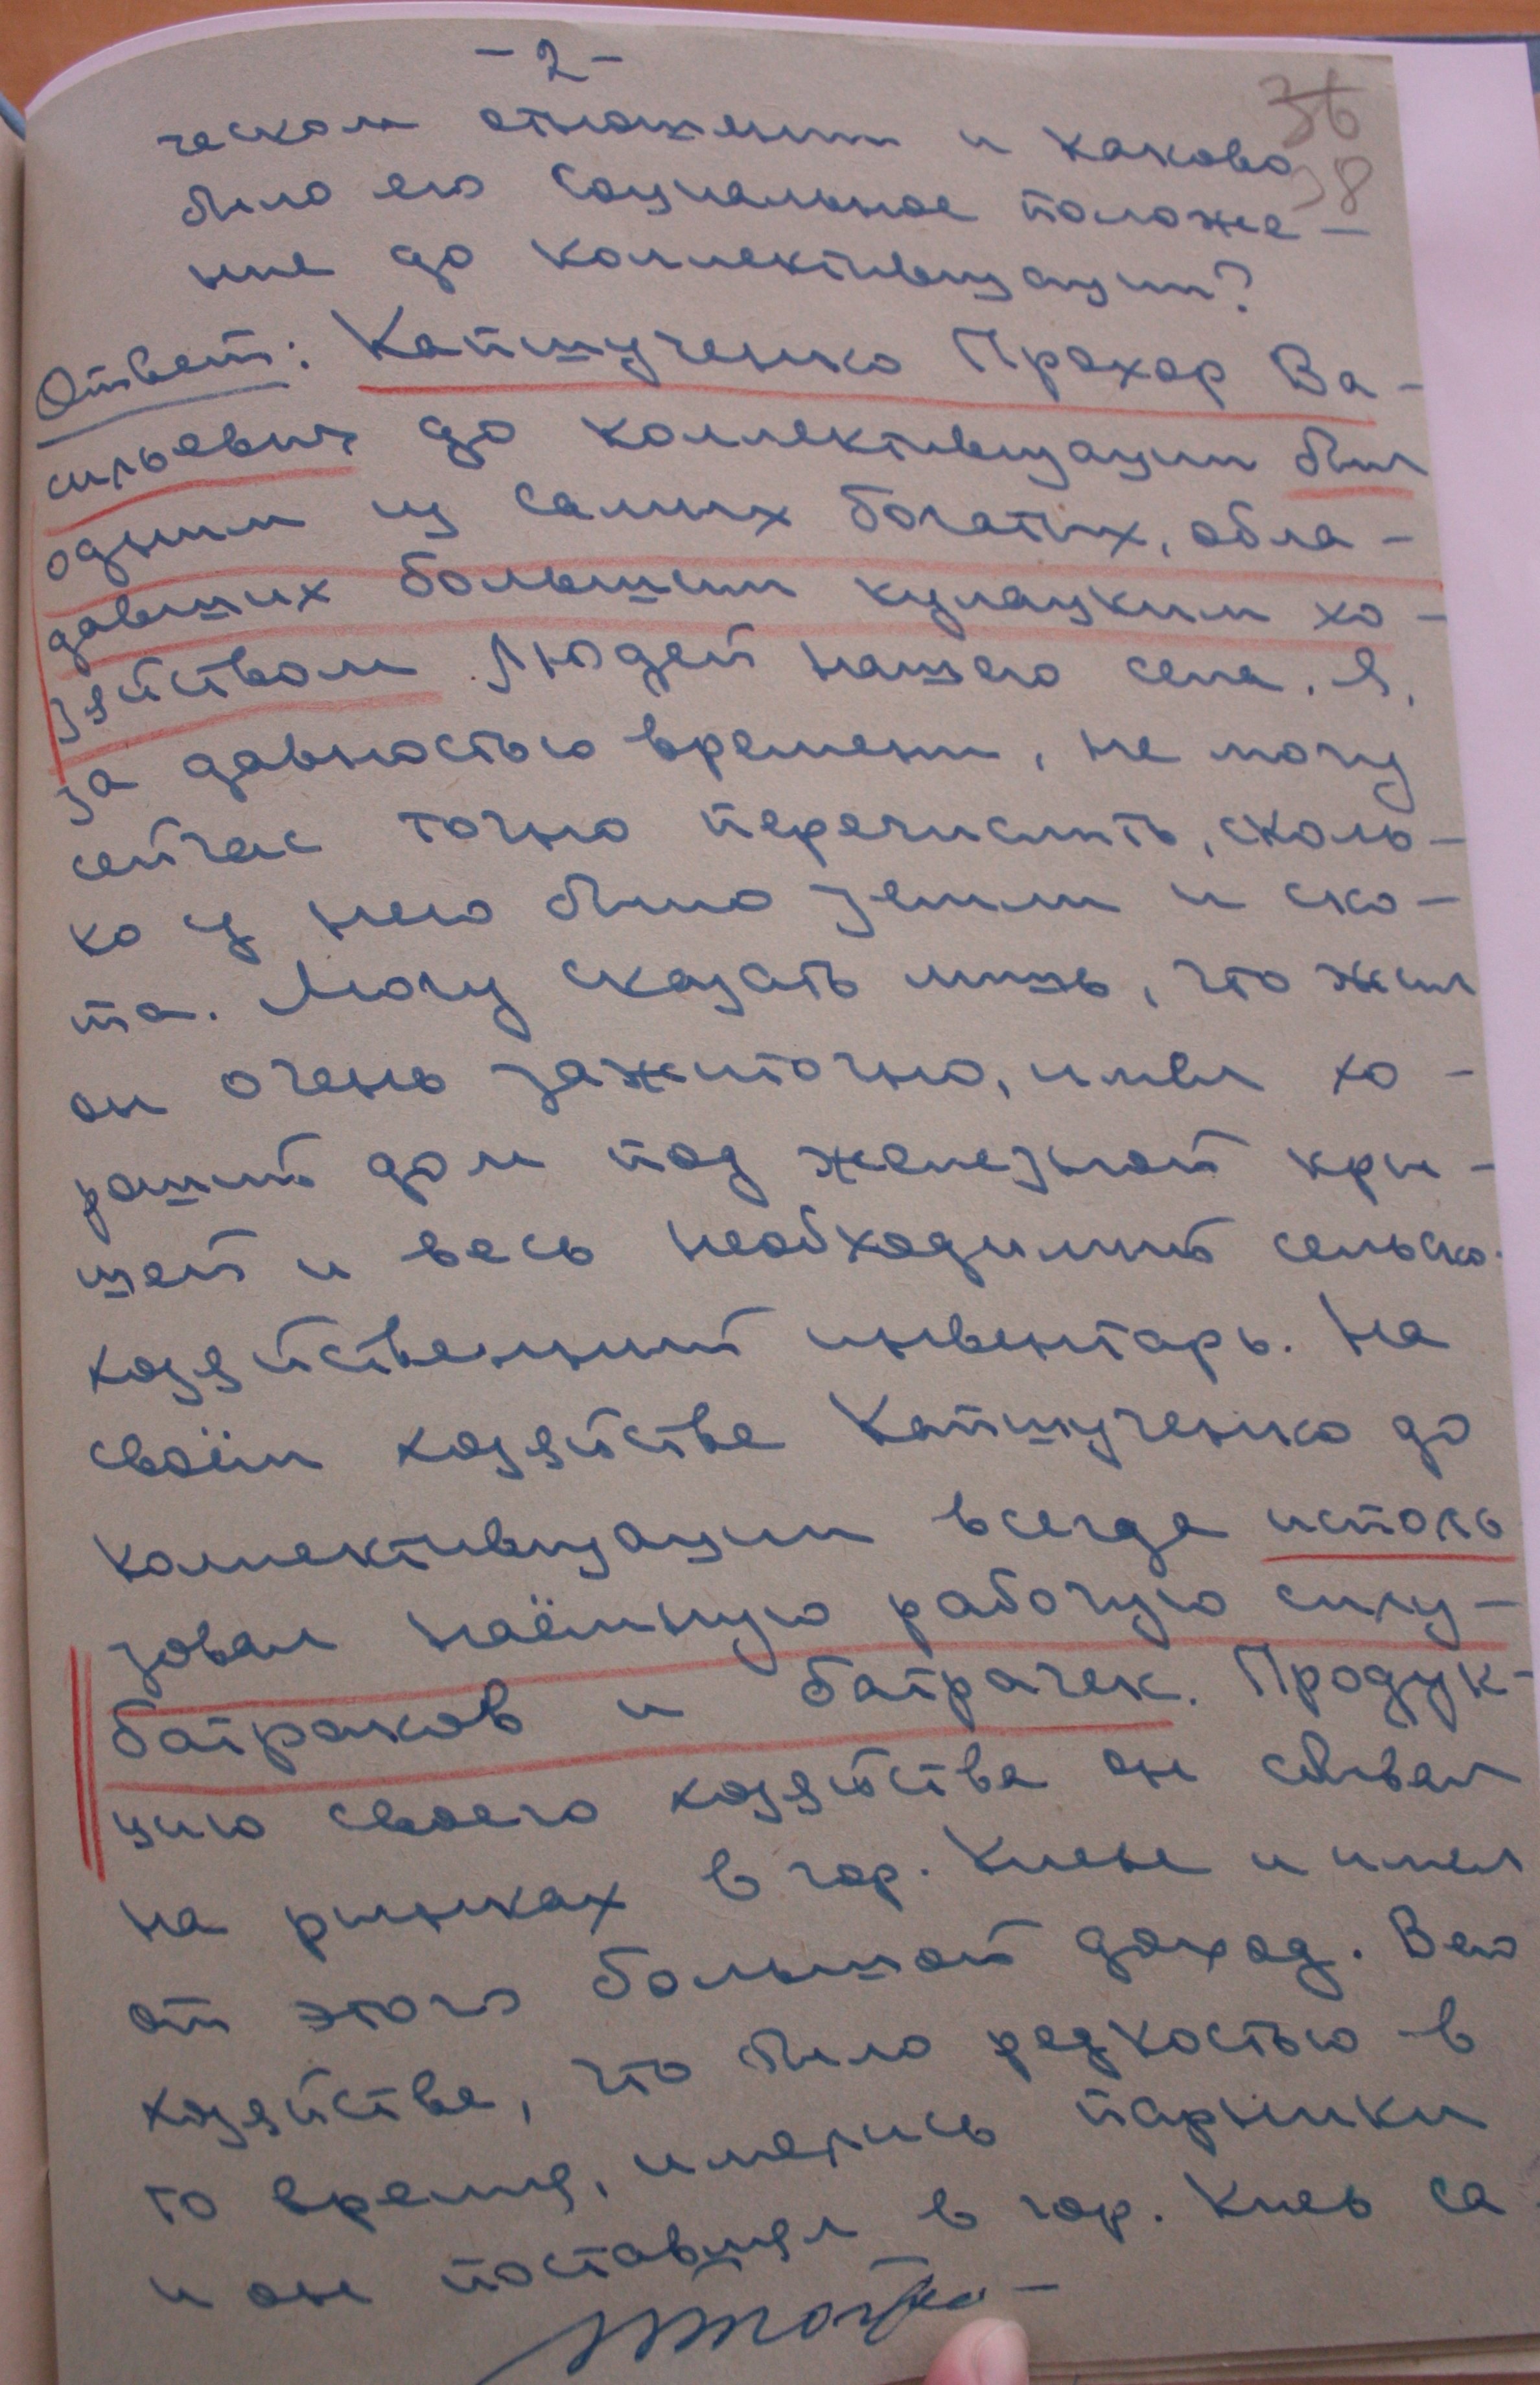 -2-
36
38
ческом отношении и каково
было его социальное положе-
ние до коллективизации?
Ответ: Капшученко Прохор Ва-
сильевич до коллективизации был
одним из самых богатых, обла-
давших большим кулацким хо-
зяйством людей нашего села. Я,
за давностью времени, не могу
сейчас точно перечислить, сколь-
ко у него было земли и ско-
та. Могу сказать лишь, что жил
он очень зажиточно, имел хо-
роший дом под железной кры-
шей и весь необходимый сельско-
хозяйственный инвентарь. На
своём хозяйстве Капшученко до
коллективизации всегда исполь
зовал наёмную рабочую силу -
батраков и батрачек. Продук-
цию своего хозяйства он сбывал
на рынках в гор. Киеве и имел
от этого большой доход. В его
хозяйстве, что было редкостью в
то время, имелись парники
и он поставлял в гор. Киев са